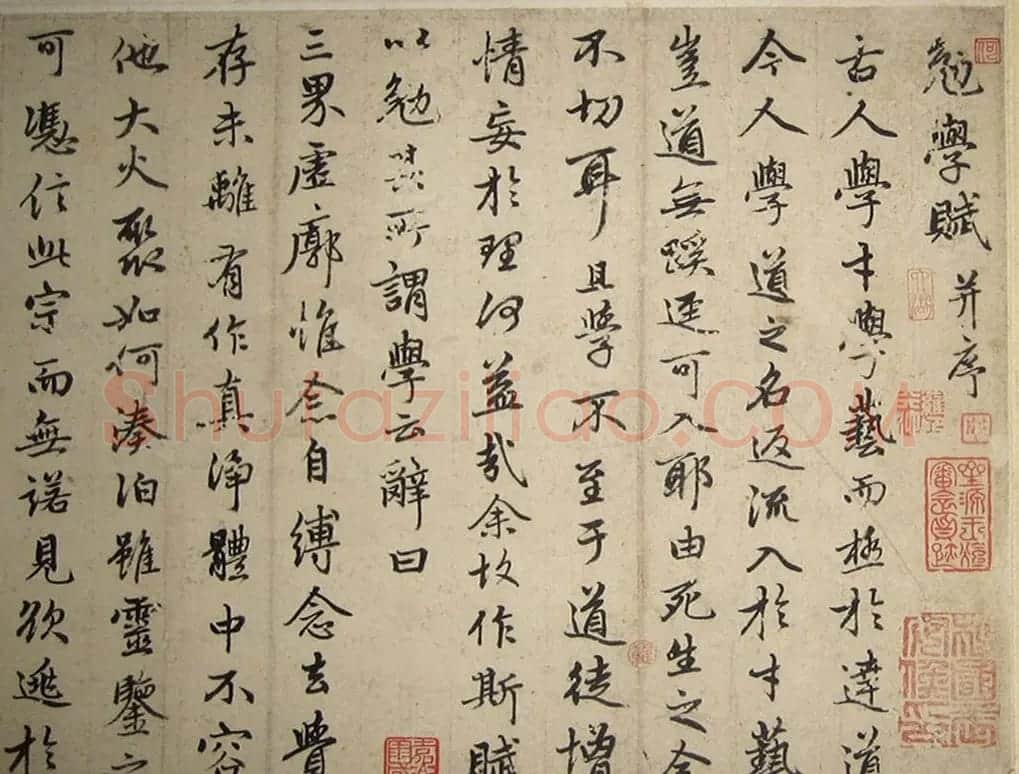 勉學賦 并序
古人學才學藝而極於達道
今人學道之名返流入於才藝
豈道無蹊逕可入耶由死生之念
不切耳且學不至于道徒增
情妄於理何益哉余故作斯賦
以勉其所謂學云辭曰
三界虛廓惟念自縛念去覺
存未離有作真淨體中不容
他大火聚如何湊泊雖靈鑒之
可憑信此宗而無諾見欲逃於
Shufaziliao.COM